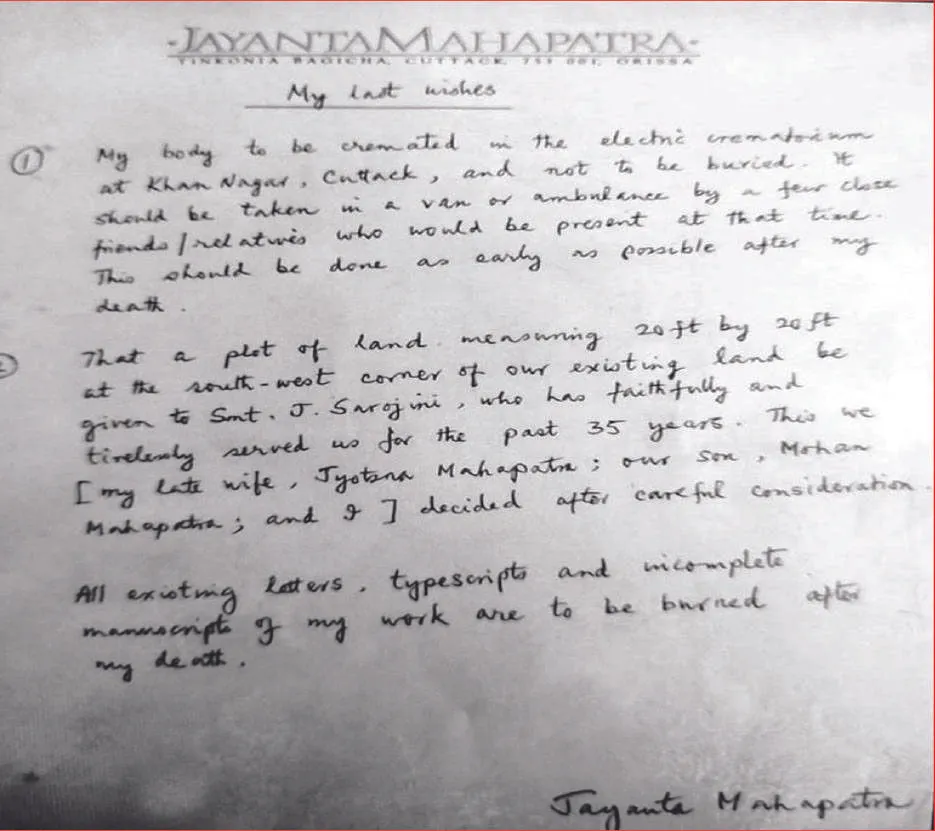 -JAYANTA MAHAPATRA-
TINKONIA BAGICHA, CUTTACK, 753 001, ORISSA
My last wishes
① My body to be cremated in the electric crematorium
at Khan Nagar, Cuttack, and not to be buried. It
should be taken in a van or ambulance by a few close
friends / relatives who would be present at that time.
This should be done as early as possible after my
death.
That a plot of land measuring 20 ft by 20 ft
at the south-west corner of our existing land be
given to Smt. J. Sarojini, who has faithfully and
tirelessly served us for the past 35 years. This we
[my late wife, Jyotsna Mahapatra; our son, Mohan
Mahapatra; and I] decided after careful consideration.
All existing letters, typescripts and incomplete
manuscripts of my work are to be burned after
my death.
Jayanta Mahapatra